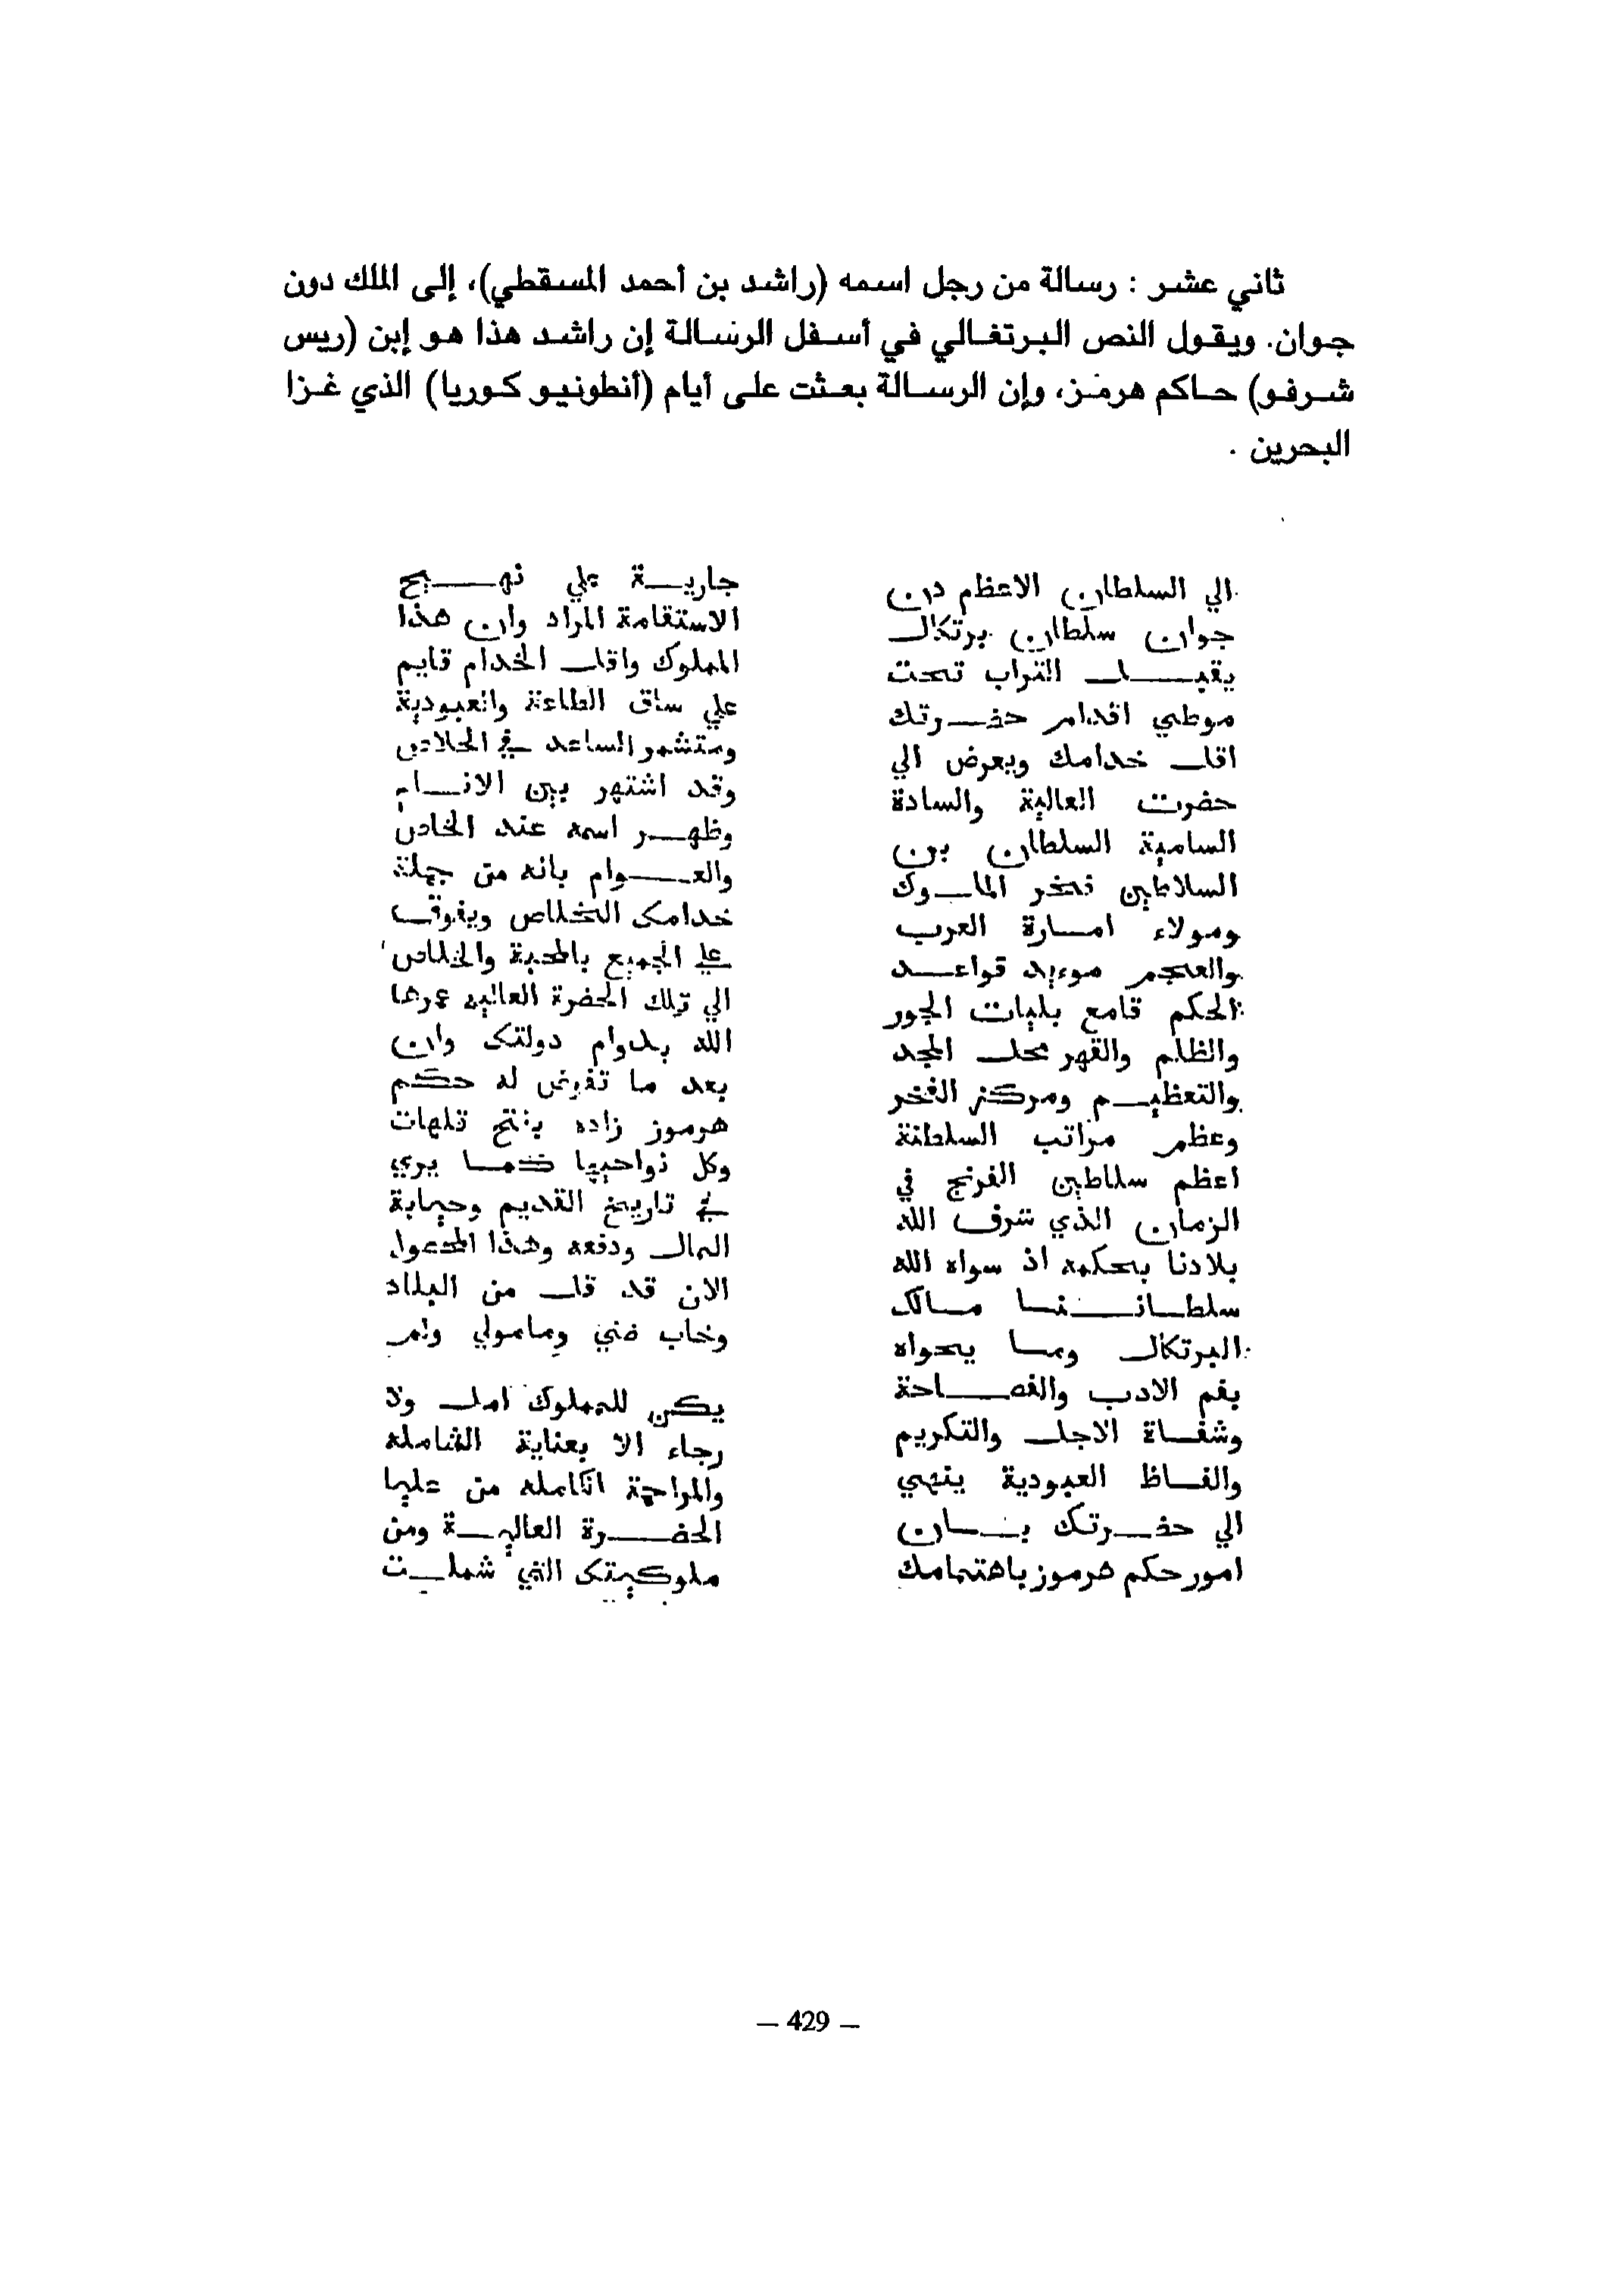 ثاني عشر : رسالة من رجل اسمه (راشد بن أحمد المسقطي)، إلى الملك دون
جوان. ويقول النص البرتغالي في أسفل الرسالة إن راشد هذا هو إبن (ريس
شرفو) حاكم هرمز، وإن الرسالة بعثت على أيام (أنطونيو كوريا) الذي غزا
البحرين .
الي السلطان الاعظم دون
جوان سلطان برتكال
يقبل التراب تحت
موطي اقدام حضرتك
اقل خدامك ويعرض الي
حضرت العالية والسادة
السامية السلطان بن
السلاطين فخر الملوك
ومولاء امارة العرب
والعجم مويد قواعد
الحكم قامع بليات الجور
والظلم والقهر محل المجد
والتعظيم ومركز الفخر
وعظم مراتب السلطنة
اعظم سلاطين الفرنج في
الزمان الذي شرف الله
بلادنا بحكمه اذ سواه الله
سلطاننا مالك
البرتكال وما يحواه
بفم الادب والفصاحة
وشفاة الاجل والتكريم
والفاظ العبودية ينهي
الي حضرتك بان
امور حكم هرموز باهتمامك
جارية علي نهج
الاستقامة المراد وان هذا
المملوك واقل الخدام قايم
علي ساق الطاعة والعبودية
ومتشمر الساعد في الخلاص
وقد اشتهر بين الانام
وظهر اسمه عند الخاص
والعوام بانه من جملة
خدامك الخلاص ويفوق
علي الجميع بالمحبة والخلاص
الي تلك الحضرة العاليه عمرها
الله بدوام دولتك وان
بعد ما تفوض له حكم
هرموز زاده بفتح قلهات
وكل نواحيها كما يري
في تاريخ القديم وجباية
المال ودفعه وهذا المحصول
الان قد قل من البلاد
وخاب ضني ومامولي ولم
يكن للمملوك امل ولا
رجاء الا بعناية الشامله
والمراحمة الكامله من عليا
الحضرة العالية ومن
ملوكيتك التي شملت
– 429 –